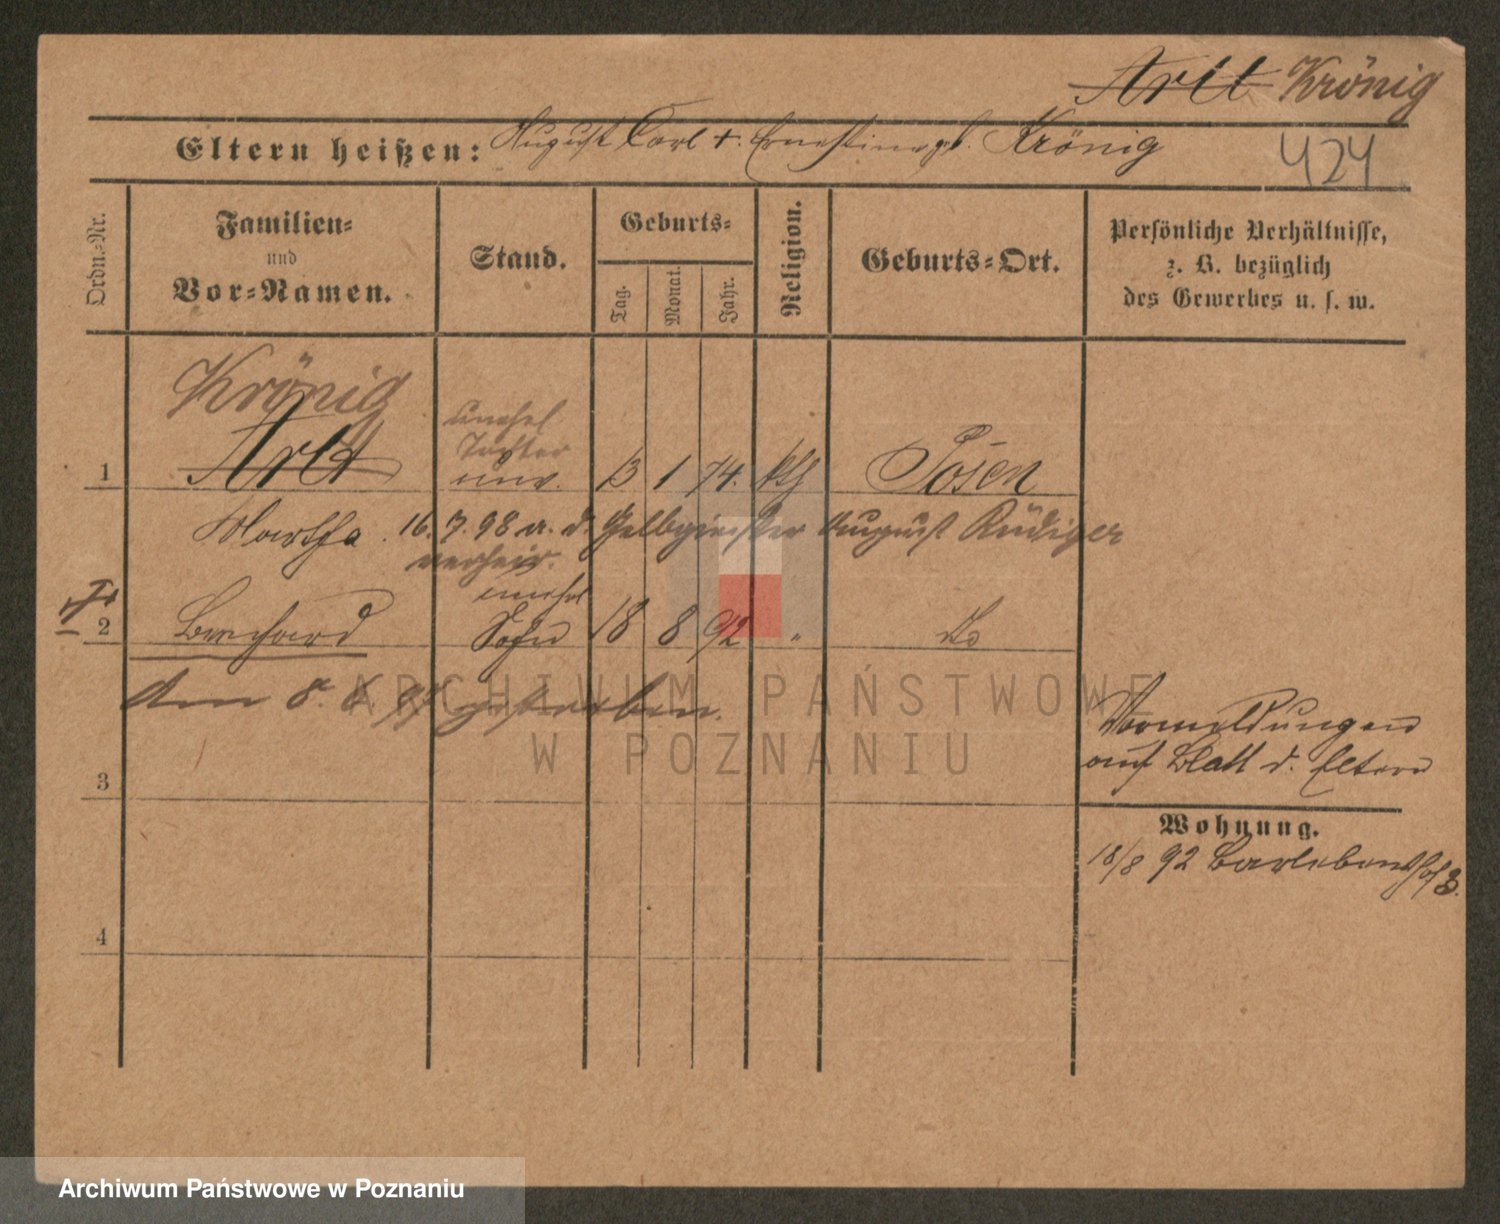 Arlt Krönig
Eltern heißen: August Carl + Ernestine geb. Krönig
424
Ordn.-Nr.
Familien-
und
Vor-Namen.
Stand.
Geburts-
Tag.
Monat.
Jahr.
Religion.
Geburts-Ort.
Persönliche Verhältnisse,
z. B. bezüglich
des Gewerbes u. s. w.
Krönig
unehel
Tochter
1 Arlt unv. 13 1 74. kth Posen
Martha. 16. 7. 98 a. d. Gelbgießer August Rüdiger
verheir.
unehel
2 Bernhard Sohn 18 8 92 " do
den 8. 8. 92 gestorben.
Vormeldungen
auf Blatt d. Eltern
3
Wohnung.
18/8 92 Barlebenshof 3.
4
ARCHIWUM PAŃSTWOWE
W POZNANIU
Archiwum Państwowe w Poznaniu